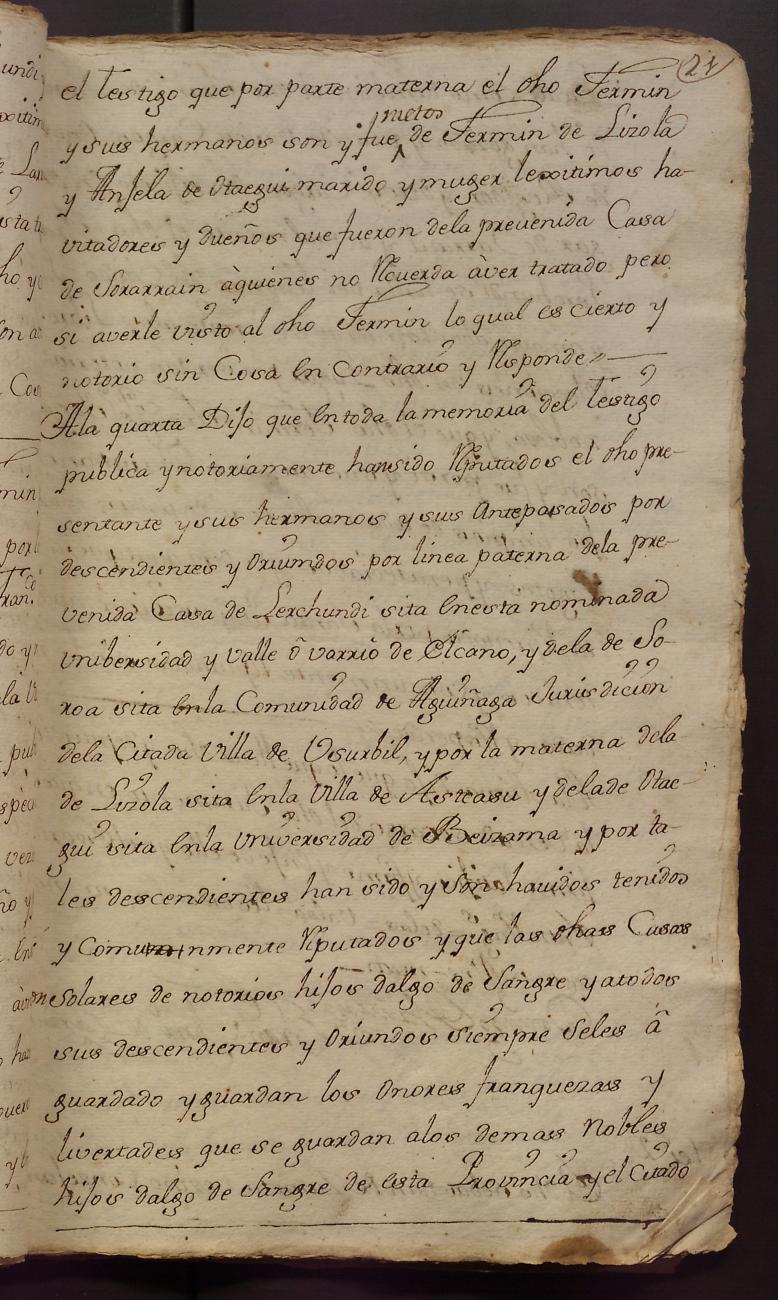 21
el testigo que por parte materna el dho Fermin
y sus hermanos son y fue nietos de Fermin de Lizola
y Anjela de Otaegui marido y muger lexitimos ha-
vitadores y dueños que fueron dela prevenida Casa
de Sorarrain àquienes no Recuerda àver tratado pero
si averle visto al dho Fermin lo qual es cierto y
notorio sin Cosa en contrario y Responde
Ala quarta Dijo que en toda la memoria del testigo
publica y notoriamente han sido Reputados el dho pre-
sentante y sus hermanos y sus Antepasados por
descendientes y oriundos por linea paterna dela pre-
venida Casa de Lerchundi sita en esta nominada
Unibersidad y valle ò varrio de Elcano, y dela de So-
roa sita enla Comunidad de Aguinaga Jurisdicion
dela Citada Villa de Usurbil, y por la materna dela
de Lizola sita enla Villa de Asteasu y dela de Otae-
gui sita enla Universidad de Beizama y por ta-
les descendientes han sido y son havidos tenidos
y Comunmente Reputados y que las dhas Casas
son Solares de notorios hijos dalgo de Sangre y atodos
sus descendientes y oriundos siempre seles à
guardado y guardan los onores franquezas y
livertades que se guardan alos demas Nobles
hijos dalgo de Sangre de esta Provincia y el Citado